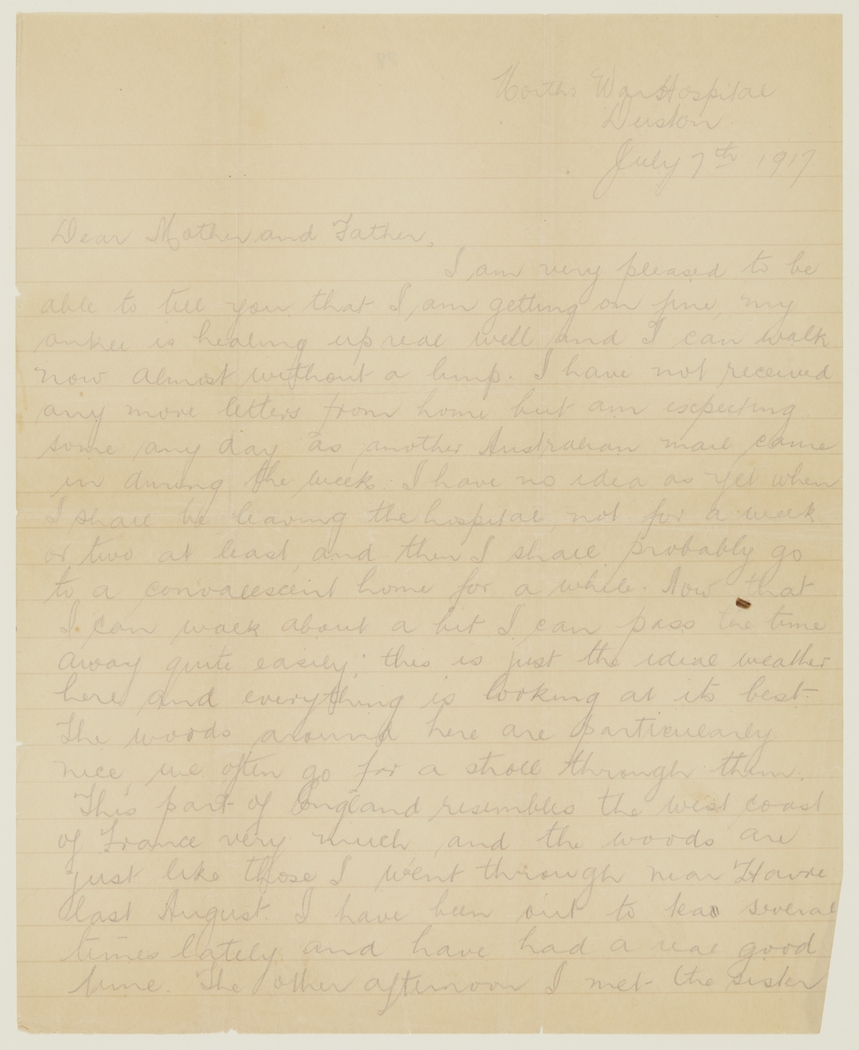 Norths War Hospital
Duston.
July 7th 1917
Dear Mother and Father,
I am very pleased to be
able to tell you that I am getting on fine, my
ankle is healing up real well and I can walk
now almost without a limp. I have not received
any more letters from home but am expecting
some any day as another Australian mail came
in during the week. I have no idea as yet when
I shall be leaving the hospital, not for a week
or two at least, and then I shall probably go
to a convalescent home for a while. Now that
I can walk about a bit I can pass the time
away quite easily; this is just the ideal weather
here and everything is looking at its best.
The woods around here are particularly
nice, we often go for a stroll through them.
This part of England resembles the west coast
of France very much, and the woods are
just like those I went through near Havre
last August. I have been out to teas several
times lately and have had a real good
time. The other afternoon I met the sister